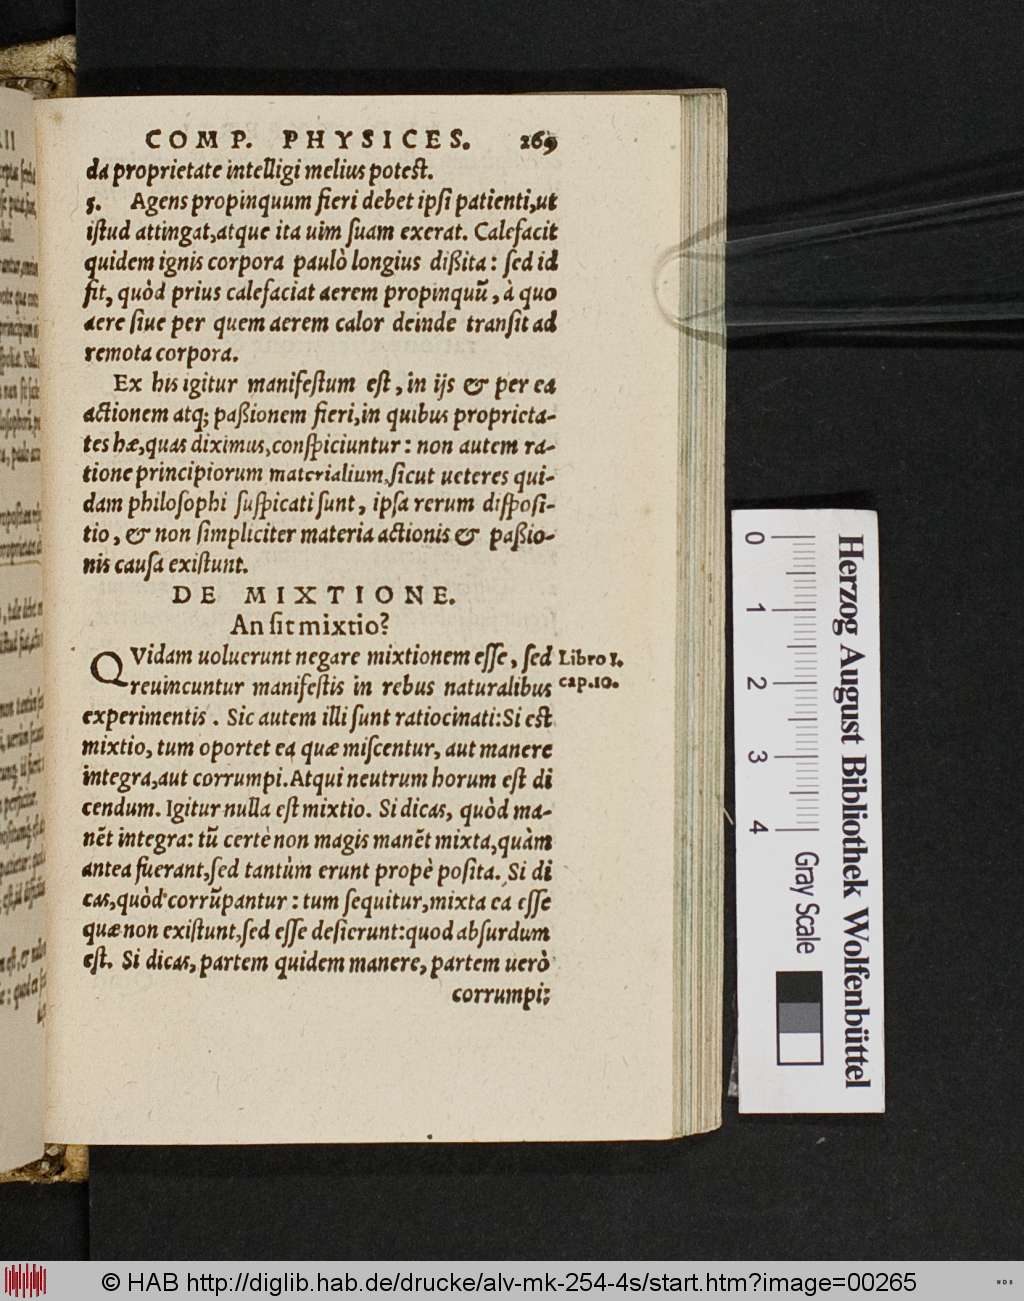 COMP. PHYSICES. 269
da proprietate intelligi melius potest.
5. Agens propinquum fieri debet ipsi patienti,ut
istud attingat,atque ita uim suam exerat. Calefacit
quidem ignis corpora paulò longius dißita: sed id
fit, quòd prius calefaciat aerem propinquū, à quo
aere siue per quem aerem calor deinde transit ad
remota corpora.
Ex his igitur manifestum est, in ijs & per ea
actionem atq; paßionem fieri,in quibus proprieta-
tes hæ,quas diximus,conspiciuntur: non autem ra-
tione principiorum materialium,sicut ueteres qui-
dam philosophi suspicati sunt, ipsa rerum disposi-
tio, & non simpliciter materia actionis & paßio-
nis causa existunt.
DE MIXTIONE.
An sit mixtio?
QVidam uoluerunt negare mixtionem esse, sed Libro 1.
reuincuntur manifestis in rebus naturalibus cap.10.
experimentis. Sic autem illi sunt ratiocinati:Si est
mixtio, tum oportet ea quæ miscentur, aut manere
integra,aut corrumpi.Atqui neutrum horum est di
cendum. Igitur nulla est mixtio. Si dicas, quòd ma-
nēt integra: tū certè non magis manēt mixta,quàm
antea fuerant,sed tantùm erunt propè posita. Si di
cas,quòd corrūpantur: tum sequitur,mixta ea esse
quæ non existunt,sed esse desierunt:quod absurdum
est. Si dicas, partem quidem manere, partem uerò
corrumpi:
Herzog August Bibliothek Wolfenbüttel
0 1 2 3 4 Gray Scale
© HAB http://diglib.hab.de/drucke/alv-mk-254-4s/start.htm?image=00265